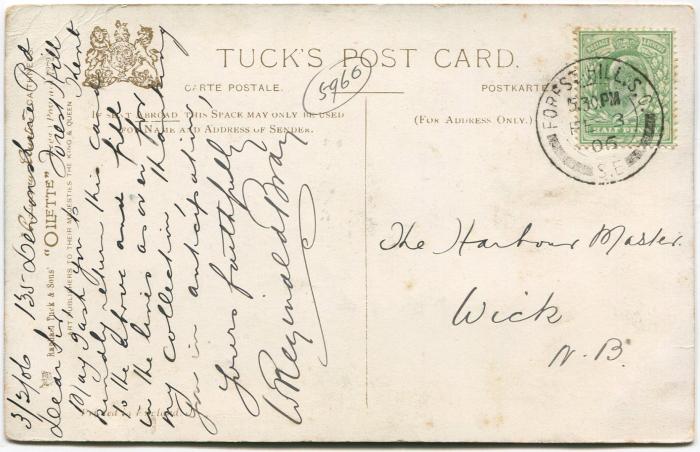 TUCK'S POST CARD.
CARTE POSTALE.
POSTKARTE
IF SENT ABROAD THIS SPACE MAY ONLY BE USED
FOR NAME AND ADDRESS OF SENDER.
(FOR ADDRESS ONLY.)
5960
FOREST HILL.S.O
5.30PM
FE 3
06
S.E
HALF PENNY
The Harbour Master.
Wick
N.B.
3/2/06 135 Devonshire Rd
Forest Hill
Kent
Dear Sir
May I ask you to
kindly return this card
to the above and fill
in the lines as over for
my collection, thanking
you in anticipation,
Yours faithfully
W Reginald Bray
Raphael Tuck & Sons' "OILETTE"
ART PUBLISHERS TO THEIR MAJESTIES THE KING & QUEEN
Printed in England